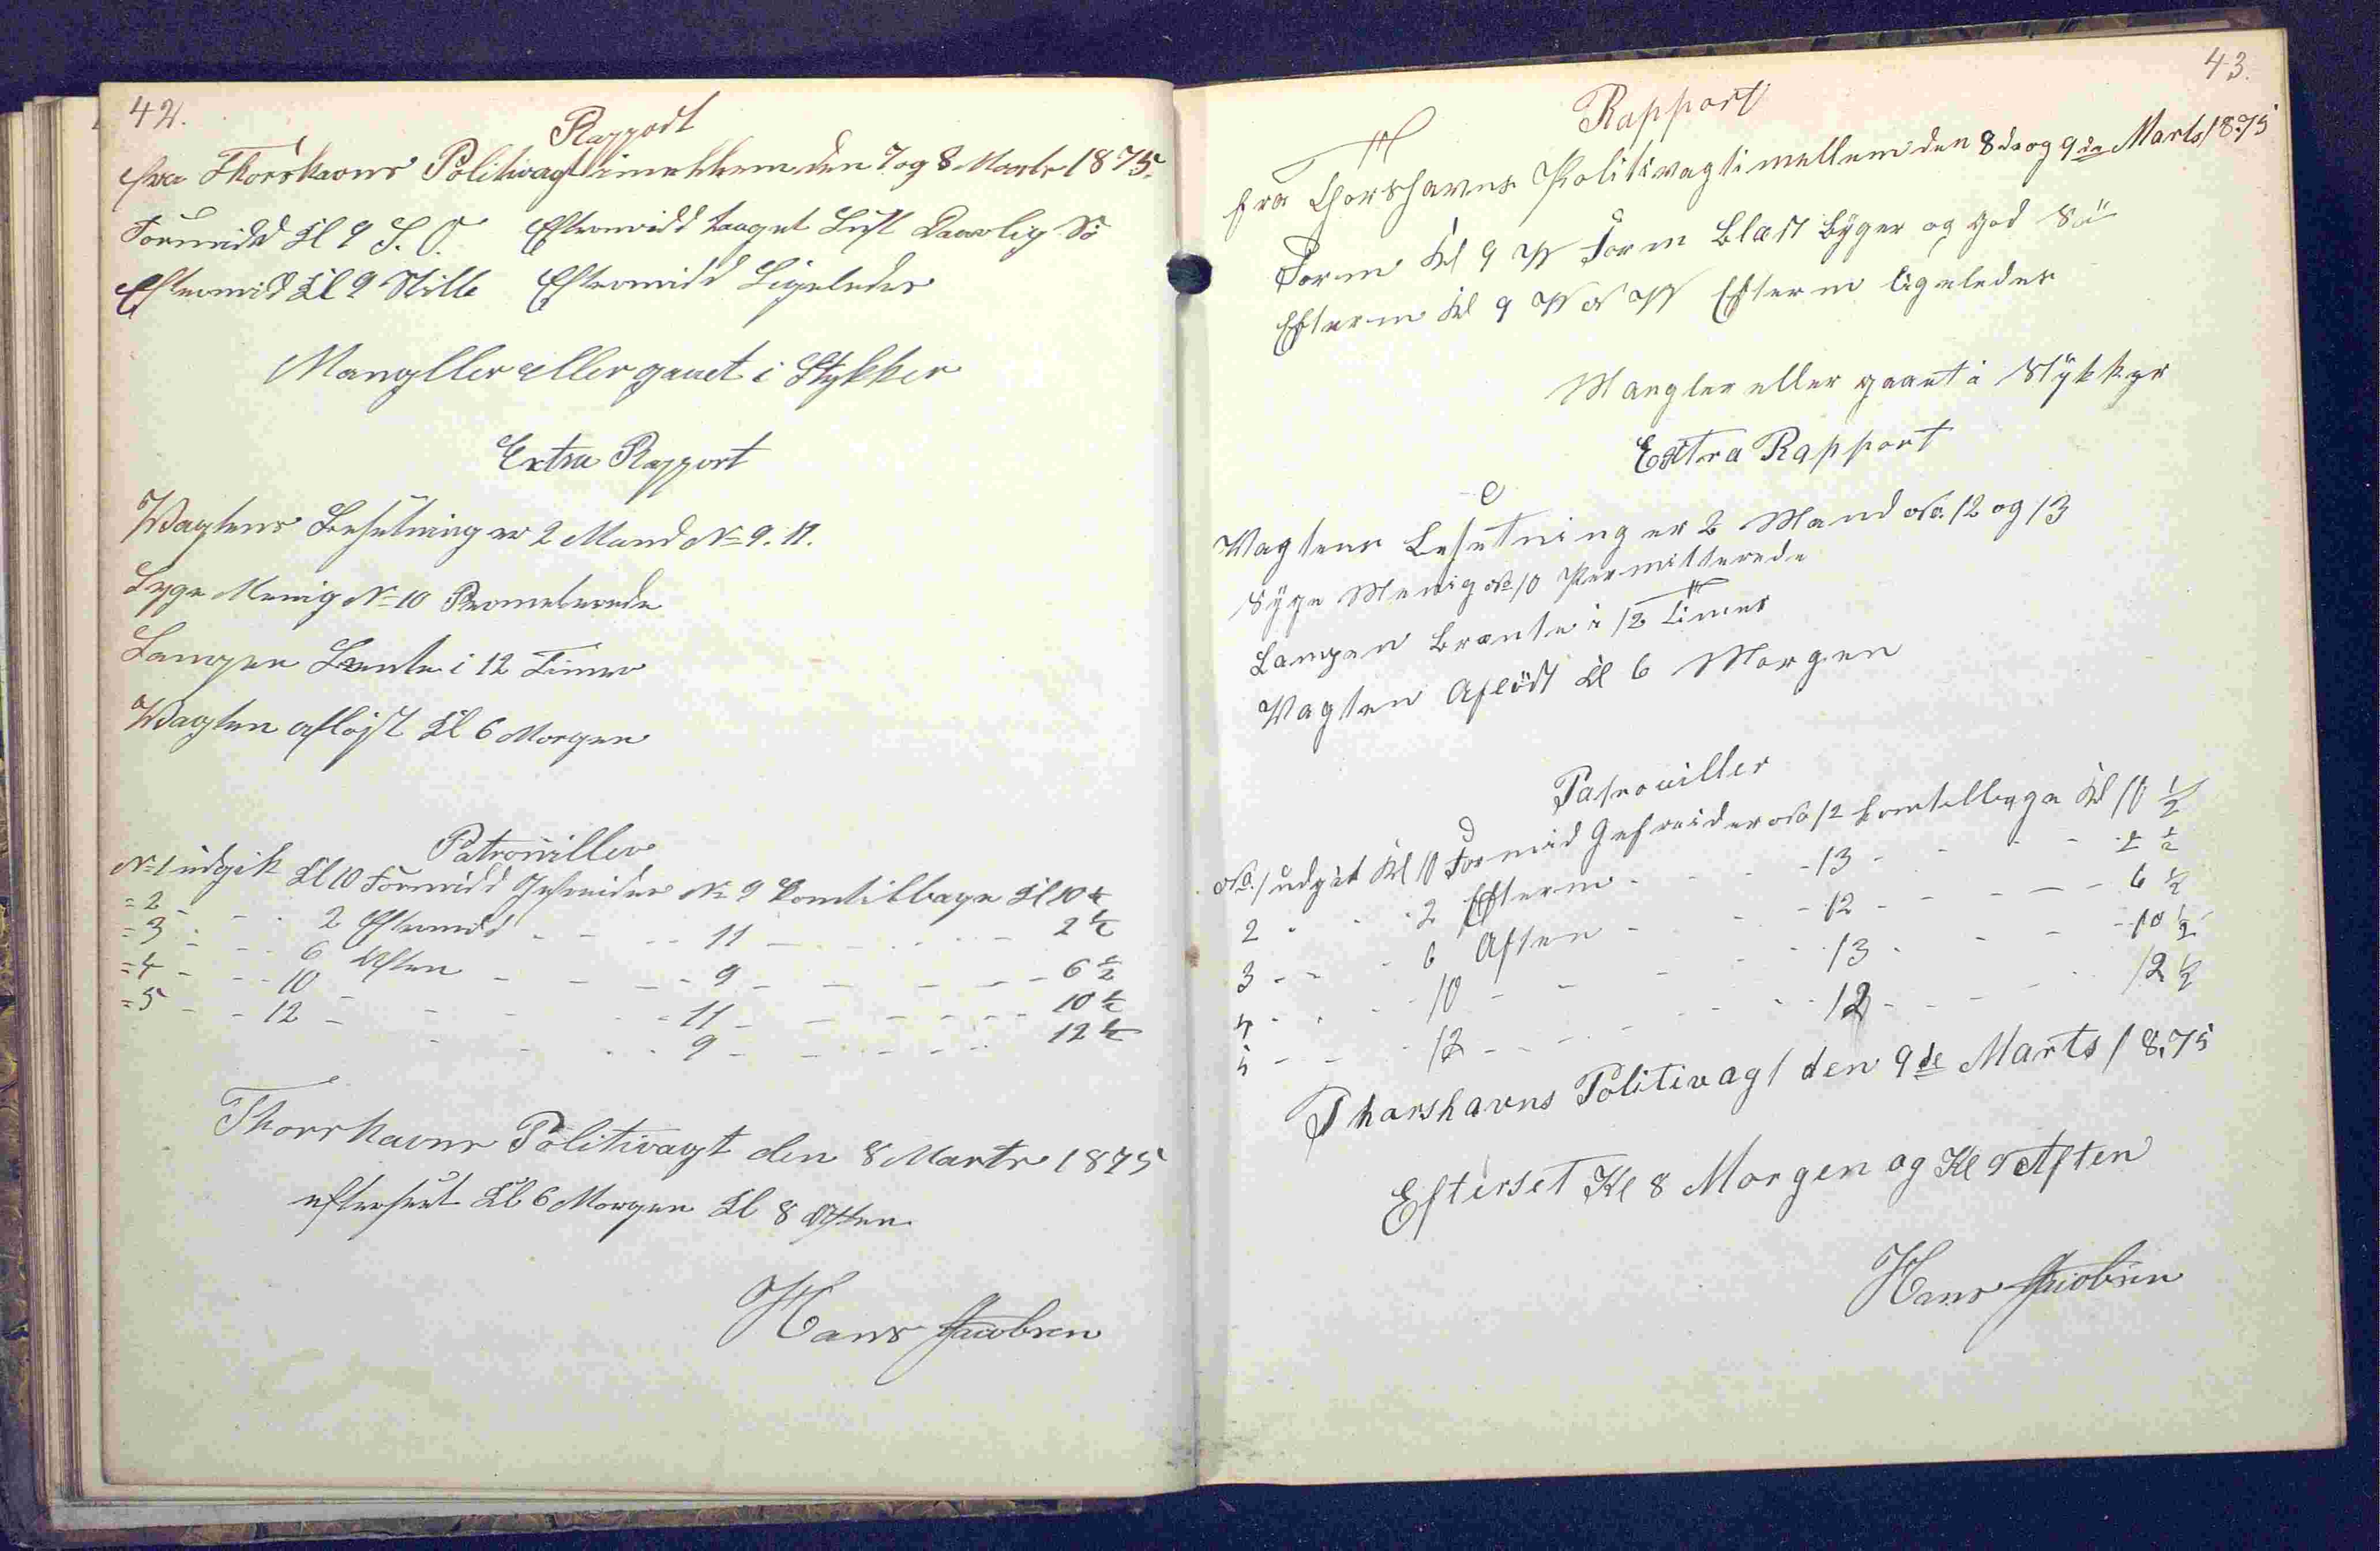 42.
Rapport
fra Thorshavns Politivagt imellem den 7 og 8 Marts 1875.
Formidd Kl 9 S. O. Eftermidd taaget Luft Daarlig Sö
Eftermid Kl 9 Stille Eftermidd Ligeledes
Mangller eller gauet i Stykker
Extra Rapport
Wagtens Besetning er 2 Mand No 9. 11.
Syge Menig No 10
Lampen Brente i 12 Timer
Wagten afløst Kl 6 Morgen
Patrouiller
No 1 udgik Kl 10 Formidd Gefreider No 9 Kom tilbage Kl 10 ½
=2 - - 2 Eftermidd - - 11 - - 2 ½
=3 - - 6 Aften - - 9 - - 6 ½
=4 - - 10 - - 11 - - 10 ½
=5 - - 12 - - 9 - - 12 ½
Thorshavns Politivagt den 8 Marts 1875
efterseet Kl 6 Morgen Kl 8 Aften
Hans Jacobsen
43.
Rapport
fra Thorshavns Politivagt imellem den 8de og 9de Marts 1875
Form Kl 9 W Form Blæst Byger og god Sö
Efterm Kl 9 W N W Efterm ligeledes
Mangler eller gaaet i Stykker
Extra Rapport
Vagtens Besetning er 2 Mand No. 12 og 13
Syge Menig No 10 Permitterede
Lampen Brænte i 12 Timer
Vagten Aflöst Kl 6 Morgen
Patrouiller
No. 1 udgik Kl 10 Formid Gefreider No 12 kom tilbage Kl 10 ½
2 - - 2 Efterm - - 13 - - 2 ½
3 - - 6 Aften - - 12 - - 6 ½
4 - - 10 - - 13 - - 10 ½
5 - - 12 - - 12 - - 12 ½
Thorshavns Politivagt den 9de Marts 1875
Efterset Kl 8 Morgen og Kl 9 Aften
Hans Jacobsen